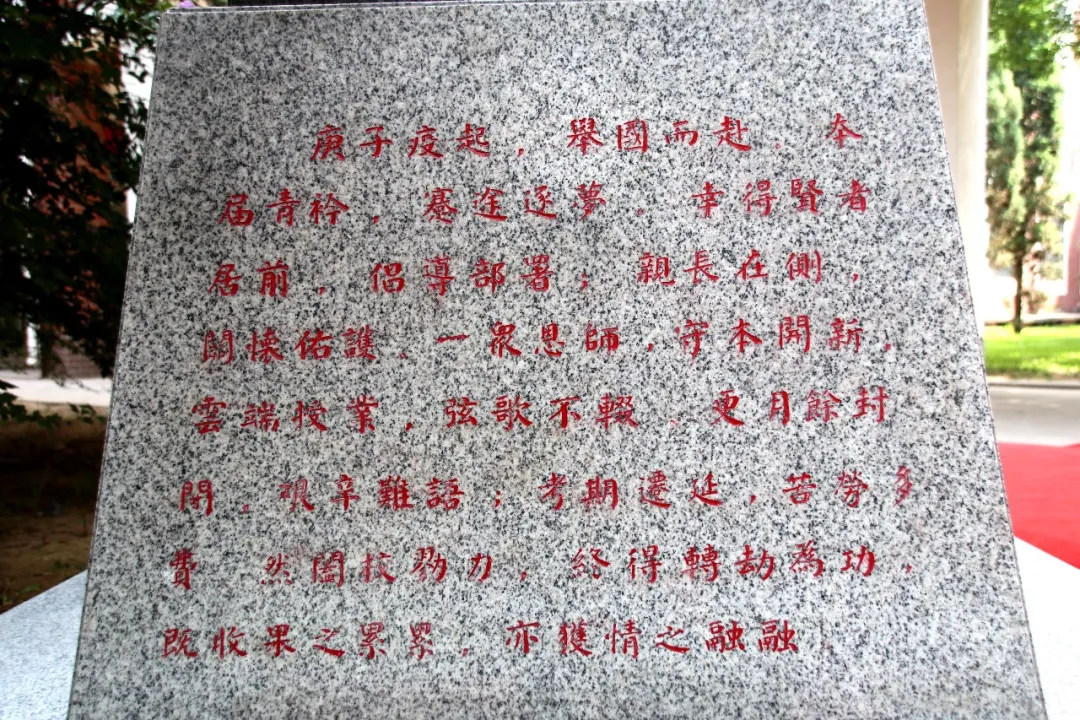 庚子疫起，舉國而赴。本
届青衿，蹇途逐夢。幸得賢者
居前，倡導部署；親長在側，
關懷佑護。一衆恩師，守本開新，
雲端授業，弦歌不輟。更月餘封
閉，艱辛難語；考期遷延，苦勞多
費。然闔校勠力，終得轉劫為功，
既收果之累累，亦獲情之融融。